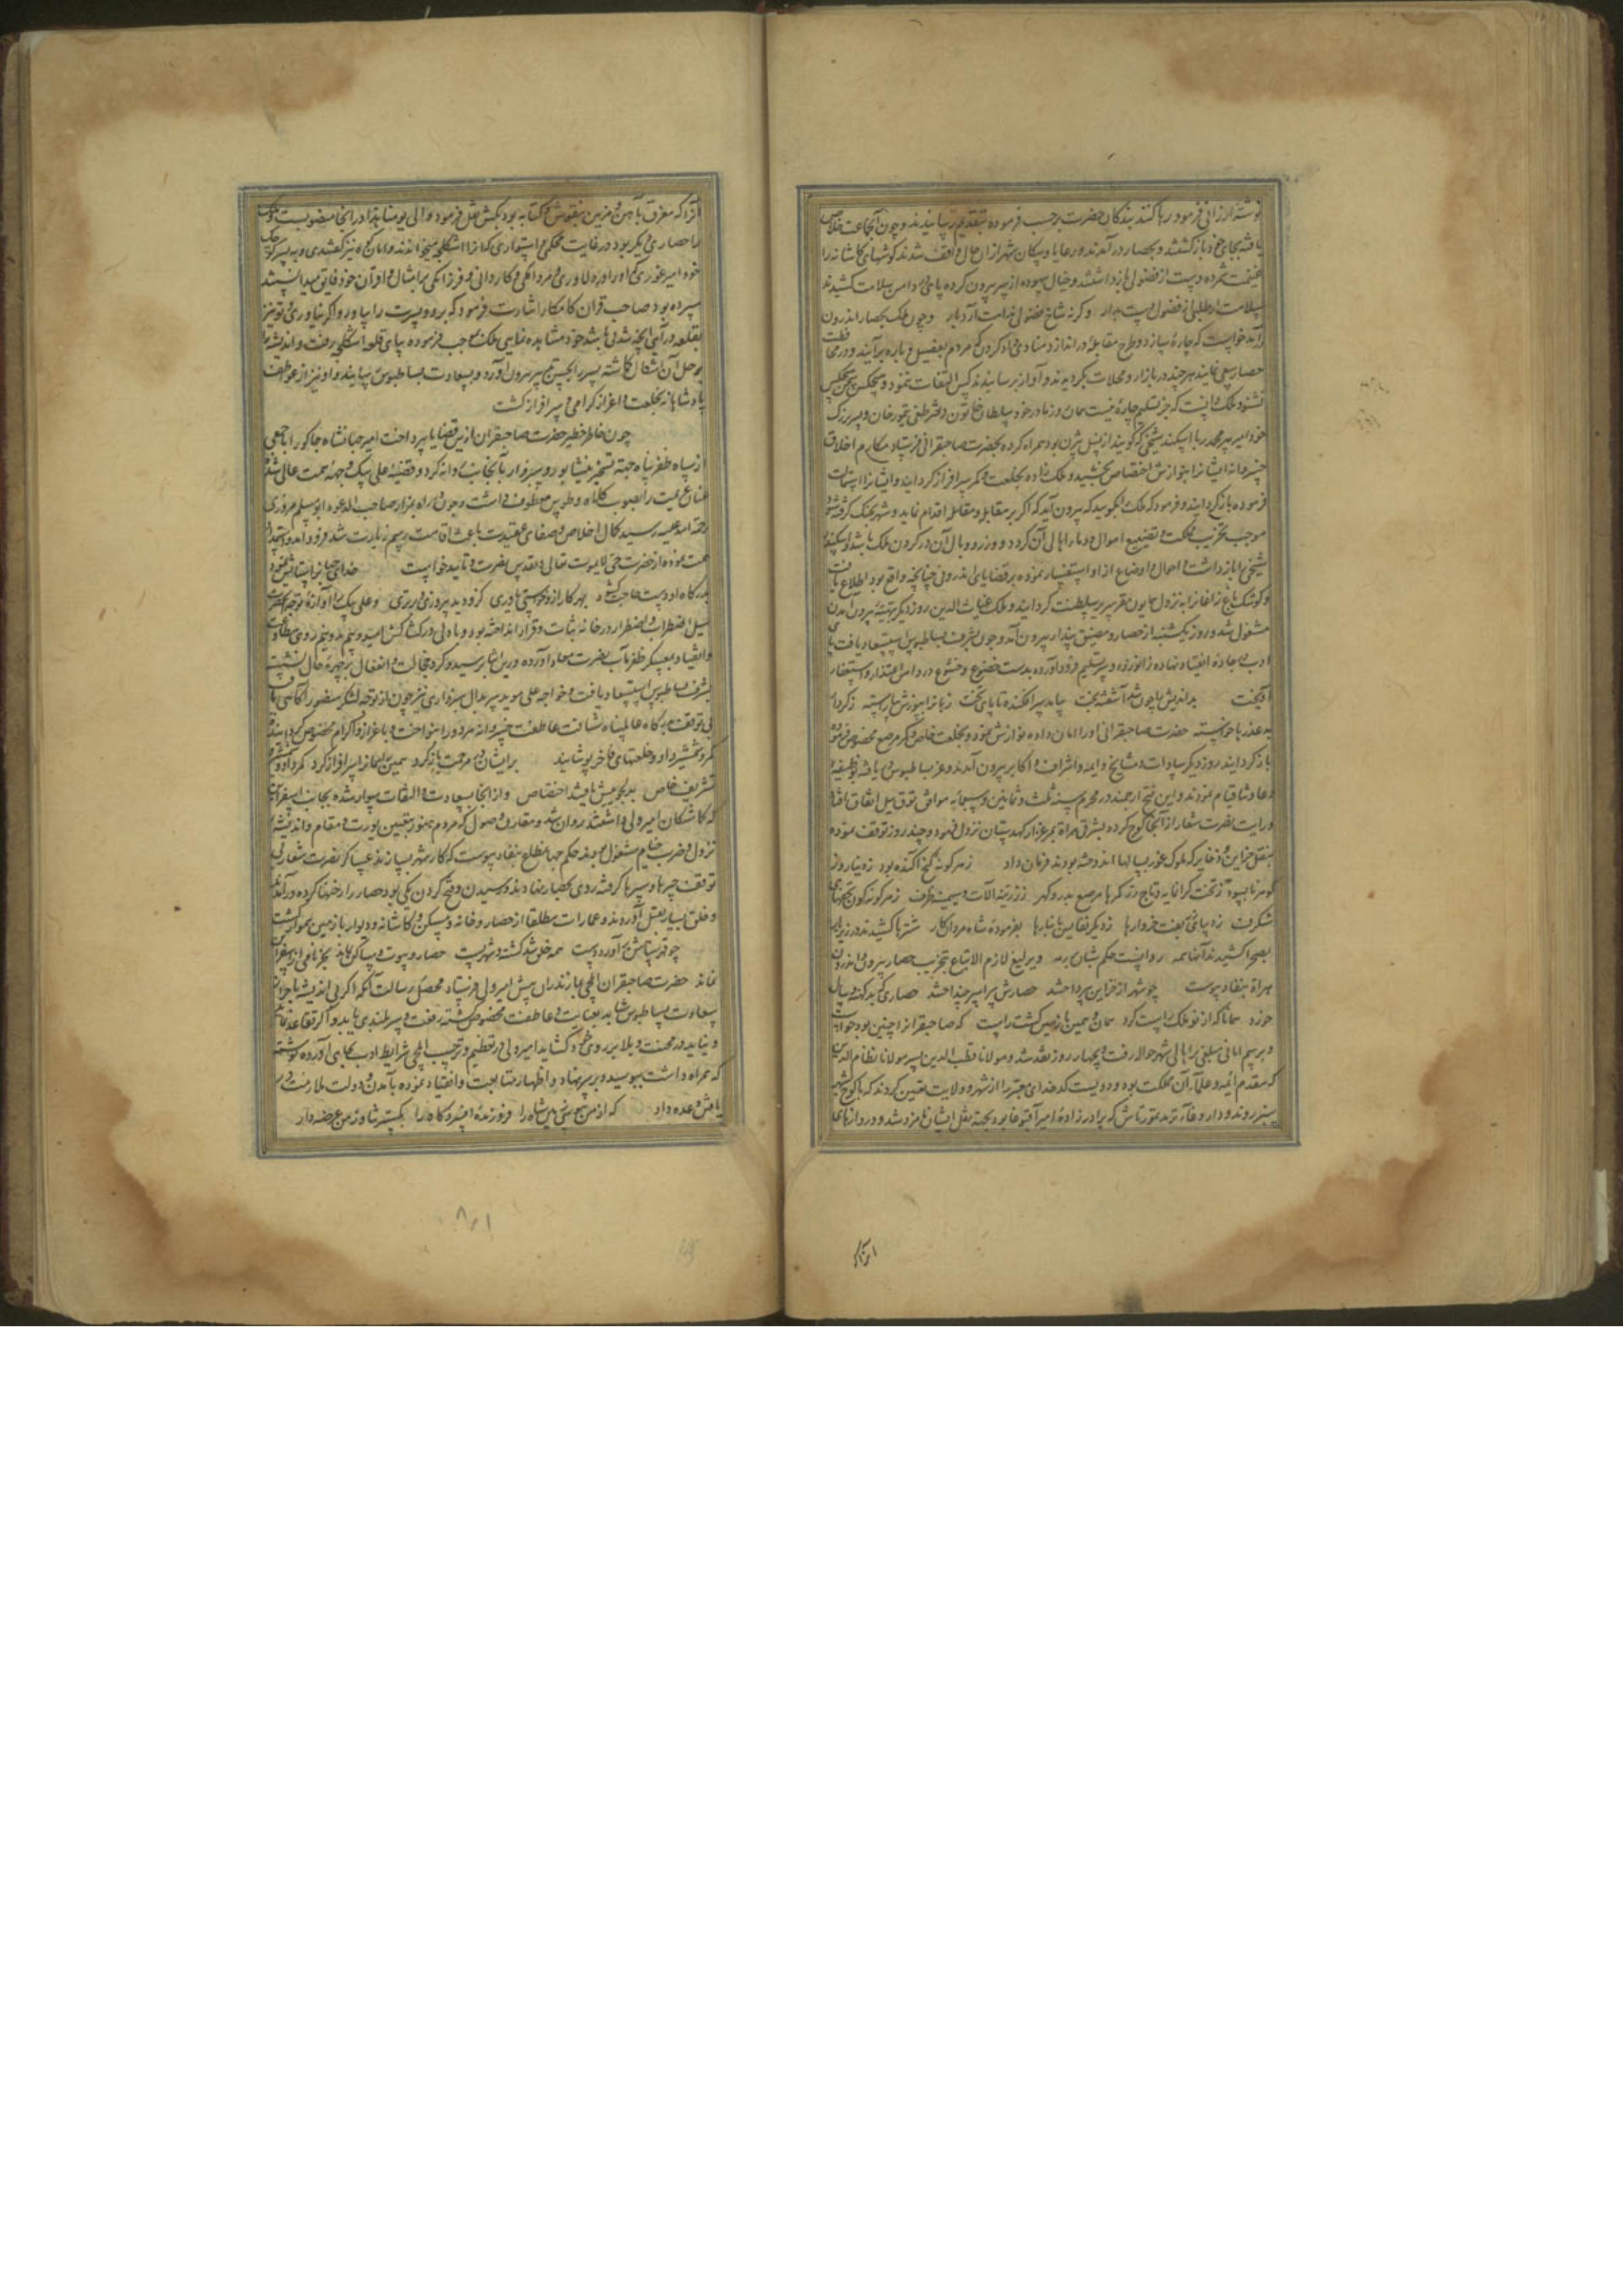 نوشته ارزانی فرمود رها کنند بندکان حضرت برحسب فرموده بتقدیم رسانیدند و چون آنجماعت خلاص
یافته بجای خود بازکشتند و بحصار درآمدند و رعایا و سکان شهر از آن حال واقف شدند کوشهای کاشانه را
غنیمت شمرده دست از فضولی بازداشتند و خیال بیهوده از سر بیرون کرده پای در دامن سلامت کشیدند
سلامت طلبی از فضولی دست بدار وکرنه شاخ فضولی ندامت آرد بار و چون ملک بحصار اندرون
درآمد خواست که چاره سازد و طرح مقابله در اندازد منادی داد کردن که مردم بفصیل و باره برآیند و در محافظت
حصار سعی نمایند هرچند در بازار و محلات بکردیدند و آواز برسانیدند کس التفات ننمود و هیچکس سخن هیچکس
نشنود ملک دانست که جز تسلیم چاره نیست همان روز مادر خود سلطان خاتون دختر طغی تیمور خان و پسر بزرک
خود امیر پیر محمد را با اسکندر شیخی که کویند از نسل بیژن بود همراه کرده بحضرت صاحبقرانی فرستاد مکارم اخلاق
خسروانه ایشانرا بنوازش اختصاص بخشید و ملک زاده بخلعت و کمر سرافراز کردانید و ایشانرا استمالت
فرموده بازکردانید و فرمود که ملک را بکوئید که بیرون آید که اکر بر مقابله و مقاتله اقدام نماید و شهر بجنک کرفته شود
موجب تخریب مملکت و تضییع اموال و دماء اهالی آن کردد و وزر و وبال آن در کردن ملک باشد و اسکندر
شیخی را بازداشت و احوال و اوضاع از او استفسار نموده بر قضایای اندرونی چنانچه واقع بود اطلاع یافت
و کوشک باغ زاغانرا به نزول همایون مقر سریر سلطنت کردانید و ملک غیاث الدین روز دیکر بتهیه بیرون آمدن
مشغول شد و روز یکشنبه از حصار و مضیق پندار بیرون آمد و چون بشرف بساطبوس استسعاد یافت پای
ادب بر جاده انقیاد نهاده زانو زد و سر تسلیم فرود آورده بدست خضوع و خشوع در دامن اعتذار و استغفار
آویخت بداندیش را چون شد آشفته بخت بیامد سرافکنده تا پای تخت زبانرا بپوزش بیاراسته ز کردار
بد عذرها خواسته حضرت صاحبقرانی او را امان داده نوازش نمود و بخلعت خاص و کمر مرصع مخصوص فرموده
بازکردانید روز دیکر سادات و مشایخ و ایمه و اشراف و اکابر بیرون آمدند و عز بساطبوس یافته بوظیفه
دعا و ثنا قیام نمودند و این فتح ارجمند در محرم سنه ثلث و ثمانین و سبعمایه موافق توق ییل اتفاق افتاد
و رایت نصرت شعار از آنجا کوچ کرده بشرق هراة بمرغزار کهدستان نزول فرمود و چند روز توقف نموده
بنقل خزاین و ذخایر که ملوک غور بسالها اندوخته بودند فرمان داد ز هر کونه کنج آکنده بود ز دینار و ز
کوهر نابسوده ز تخت کرانمایه و تاج زر کمرها مرصع بدر و کهر ز زرینه آلات و سیمینه ظرف ز هر کونه کون تحفهای
شکرف ز دیبای بفت خروارها ز دیکر نفایس بانبارها بفرموده شاه مردان کار شتر با کشیدند در زیر بار
بصحرا کشیدند آنها همه روانست حکم شبان بر رمه و یرلیغ لازم الاتباع بتخریب حصار بیرون و اندرون
هراة بنفاد پیوست چو شهر از خزاین پرداختند حصارش سراسر بینداختند حصاری که بد کنده سال
خورد همانا که از نو ملک راست کرد همان و همین با زمین کشت راست که صاحبقرانرا چنین بود خواست
و برسم امانی مبلغی بر اهالی شهر حواله رفت و بچهار روز نقد شد و مولانا قطب الدین پسر مولانا نظام الدین
که مقدم ائمه و علماء آن مملکت بود و دویست کدخدای معتبر را از شهر و ولایت تعیین کردند که با کوچ بشهر
سبز روند و داروغاء ترمد تمورتاش که برادر زاده امیر آقبوغا بود بجهة نقل ایشان نامزد شد و دروازهای
آنرا که مغرق بآهن و مزین بنقوش و کتابه بود بکش نقل فرمود و الی یومنا هذا در آنجا منصوبست و ملک
را حصاری دیکر بود در غایت محکمی و استواری که آنرا اشکلجه میخوانند و امان کوه نیز کفتندی و به پسر کوچک
خود امیر غوری که او را در دلاوری و مردانکی و کاردانی و فرزانکی بر امثال و اقران خود فایق میدانستند
سپرده بود صاحب قران کامکار اشارت فرمود که برو و پسرت را بیاور و اکر نیاوری و تو نیز
بقلعه درآیی آنچه شدنی باشد خود مشاهده نمایی ملک بموجب فرموده بپای قلعه اشکلجه رفت و اندیشه را
بر حل آن اشکال کماشته پسر را بحسن تدبیر بیرون آورد و بسعادت بساطبوس رسانید و او نیز از عواطف
پادشاهانه بخلعت و اعزاز کرامی و سرافراز کشت
چون خاطر خطیر حضرت صاحبقران ازین قضایا بپرداخت امیر جهانشاه جاکو را با جمعی
از سپاه ظفر پناه جهة تسخیر نیشابور و سبزوار بآنجانب روانه کرد و قضیه علی بیک وجهه همت عالی شد
عنان عزیمت را بصوب کلات و طوس معطوف داشت و چون در راه بمزار صاحب الدعوه ابو مسلم مروزی
رحمة الله علیه رسید کمال اخلاص و صفای عقیدت باعث اقامت برسم زیارت شد فرود آمد و استمداد
همت نموده از حضرت حی لا یموت تعالی و تقدس نصرت و تایید خواست خدای جهانرا ستایش نمود
بدرکاه او دست حاجت کشود بهر کار ازو خواستی یاوری کزو دید پیروزی و برتری و علی بیک را آوازه توجه حضرت
سیل اضطراب و اضطرار در خانه ثبات و قرار انداخته بود و با دلی در کشاکش امید و بیم بدو نیم روی مطاوعت
و انقیاد بعسکر ظفرمآب نصرت معاد آورده درین اثنا برسید و کرد خجالت و انفعال بر چهره حال نشست
بشرف بساطبوس استسعاد یافت و خواجه علی موید سربدال سبزواری نیز چون از توجه لشکر منصور آکاهی یافت
بی توقف بدرکاه عالم پناه شتافت عاطفت خسروانه هر دو را بنواخت و باعزاز و اکرام مخصوص کردانیده
کمر و شمشیر داد و خلعتهای فاخر پوشانید بر ایشان در مرحمت باز کرد همین یلیمانرا سرافراز کرد کمر داد و شمشیر و
تشریف خاص بدلجوییش یافتند اختصاص و از آنجا بسعادت و التفات سوار شده بجانب اسفراین
که کماشتکان امیر ولی داشتند روان شد و مقارن وصول که مردم هنوز بتعیین یورت و مقام و اندیشه
نزول و ضرب خیام مشغول بودند حکم جهانمطاع بنفاد پیوست که کار شهر بسازند عساکر نصرت شعار بی
توقف چپرها و سپرها کرفته روی بحصار نهادند و رسیدن و فتح کردن یکی بود حصار را رخنها کرده درآمدند
و خلق بسیار بقتل آوردند و عمارات مطلقا از حصار و خانه و مسکن و کاشانه و دیوار با زمین هموار کشت
چو قهر سپاهش برآورد دست همه خلق شد کشته و شهر پست حصار و بیوت و مساکن نماند بجز نامی از اسفراین
نماند حضرت صاحبقران ایلچی بمازندران پیش امیر ولی فرستاد و محصل رسالت آنکه اکر بی اندیشه بجوانب
سعادت بساطبوس شتابد بعنایت و عاطفت مخصوص کشته رفعت و سربلندی یابد و اکر تقاعد نماید
و نیاید در محنت و بلا بر روی خود کشاید امیر ولی در تعظیم و ترحیب ایلچی شرایط ادب بجای آورده نوشته
که همراه داشت ببوسید و بر سر نهاد و اظهار متابعت و انقیاد نموده بآمدن دولت ملازمت در
یافتن وعده داد که از من زمین بوس شاه را فروزنده افسر و کاه را بکستر ثنا وز من عرضه دار
از آنکه